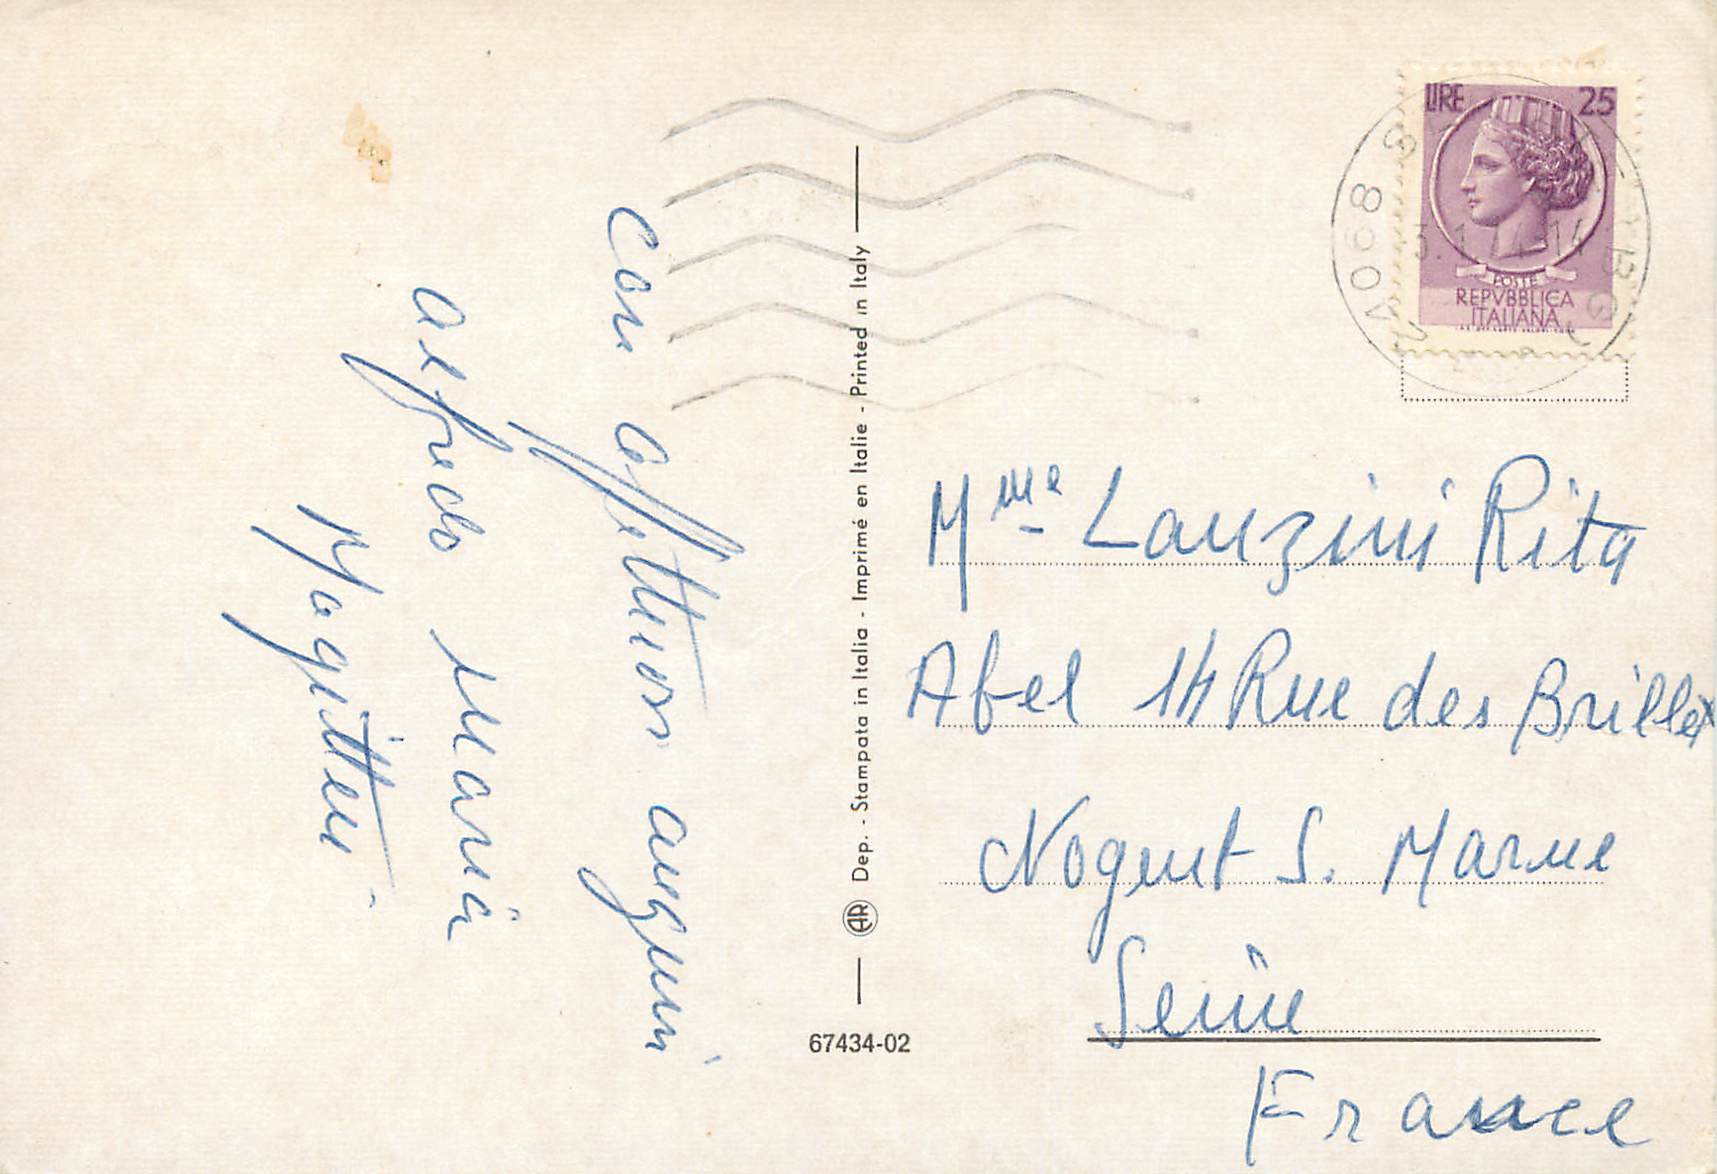 Con affettuosi auguri
Alfredo Maria
Magittui
AR Dep. - Stampata in Italia - Imprimé en Italie - Printed in Italy
67434-02
LIRE 25
POSTE
REPVBBLICA
ITALIANA
Mme Lanzini Rita
Abel 14 Rue des Brillet
Nogent S. Marne
Seine
France